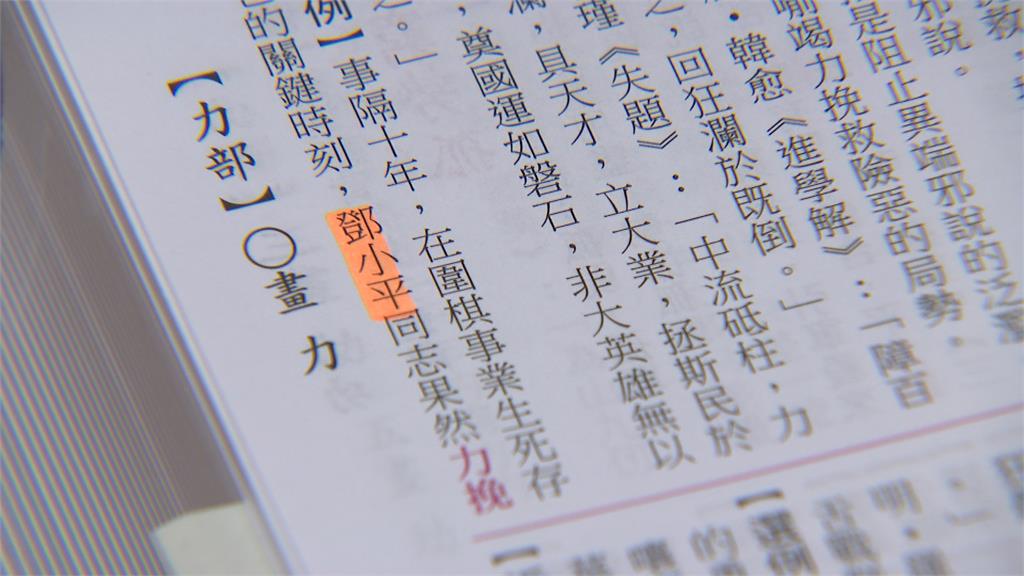 救，
邪說。
是阻止異端邪說的泛濫
喻竭力挽救險惡的局勢。
．韓愈《進學解》：「障百
之，回狂瀾於既倒。」
瑾《失題》：「中流砥柱，力
瀾，具天才，立大業，拯斯民於
，奠國運如磐石，非大英雄無以
之。」
例】事隔十年，在圍棋事業生死存
的關鍵時刻，鄧小平同志果然力挽
【力部】〇畫 力
明．
【選例
的